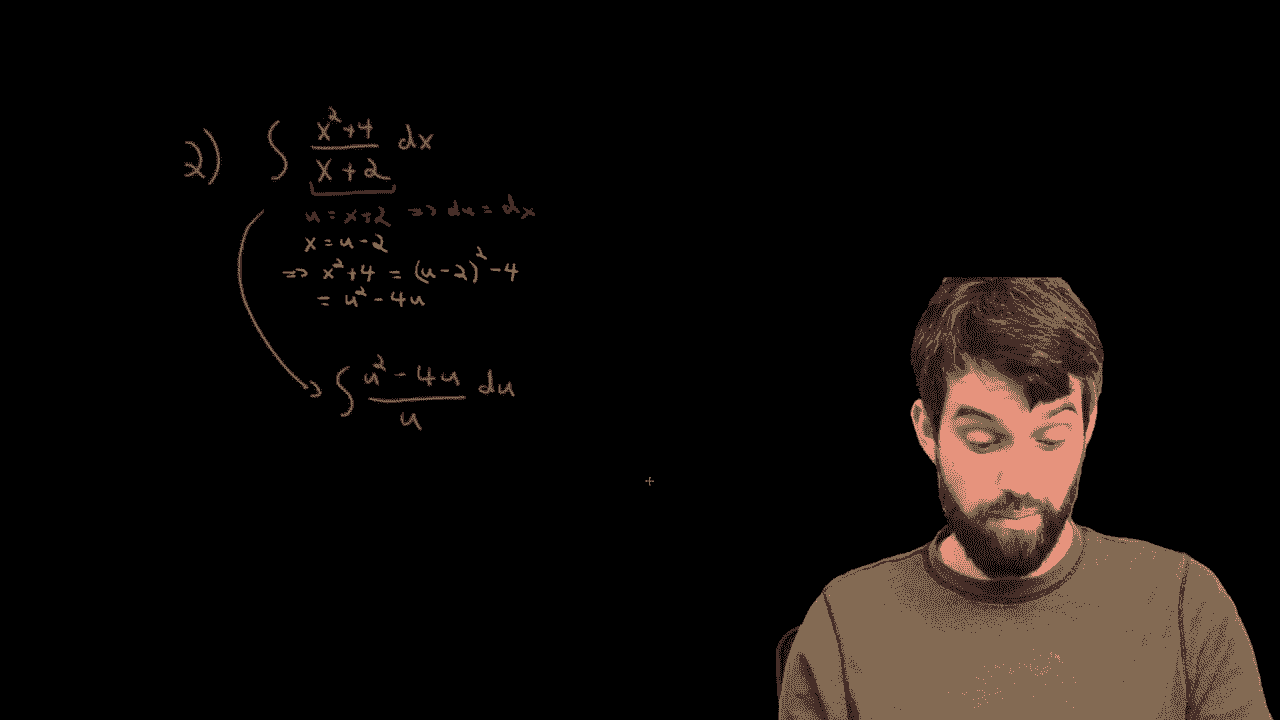 2) ∫ (x²+4)/(x+2) dx
u = x+2 => du = dx
x = u-2
=> x²+4 = (u-2)²-4
= u²-4u
∫ (u²-4u)/u du